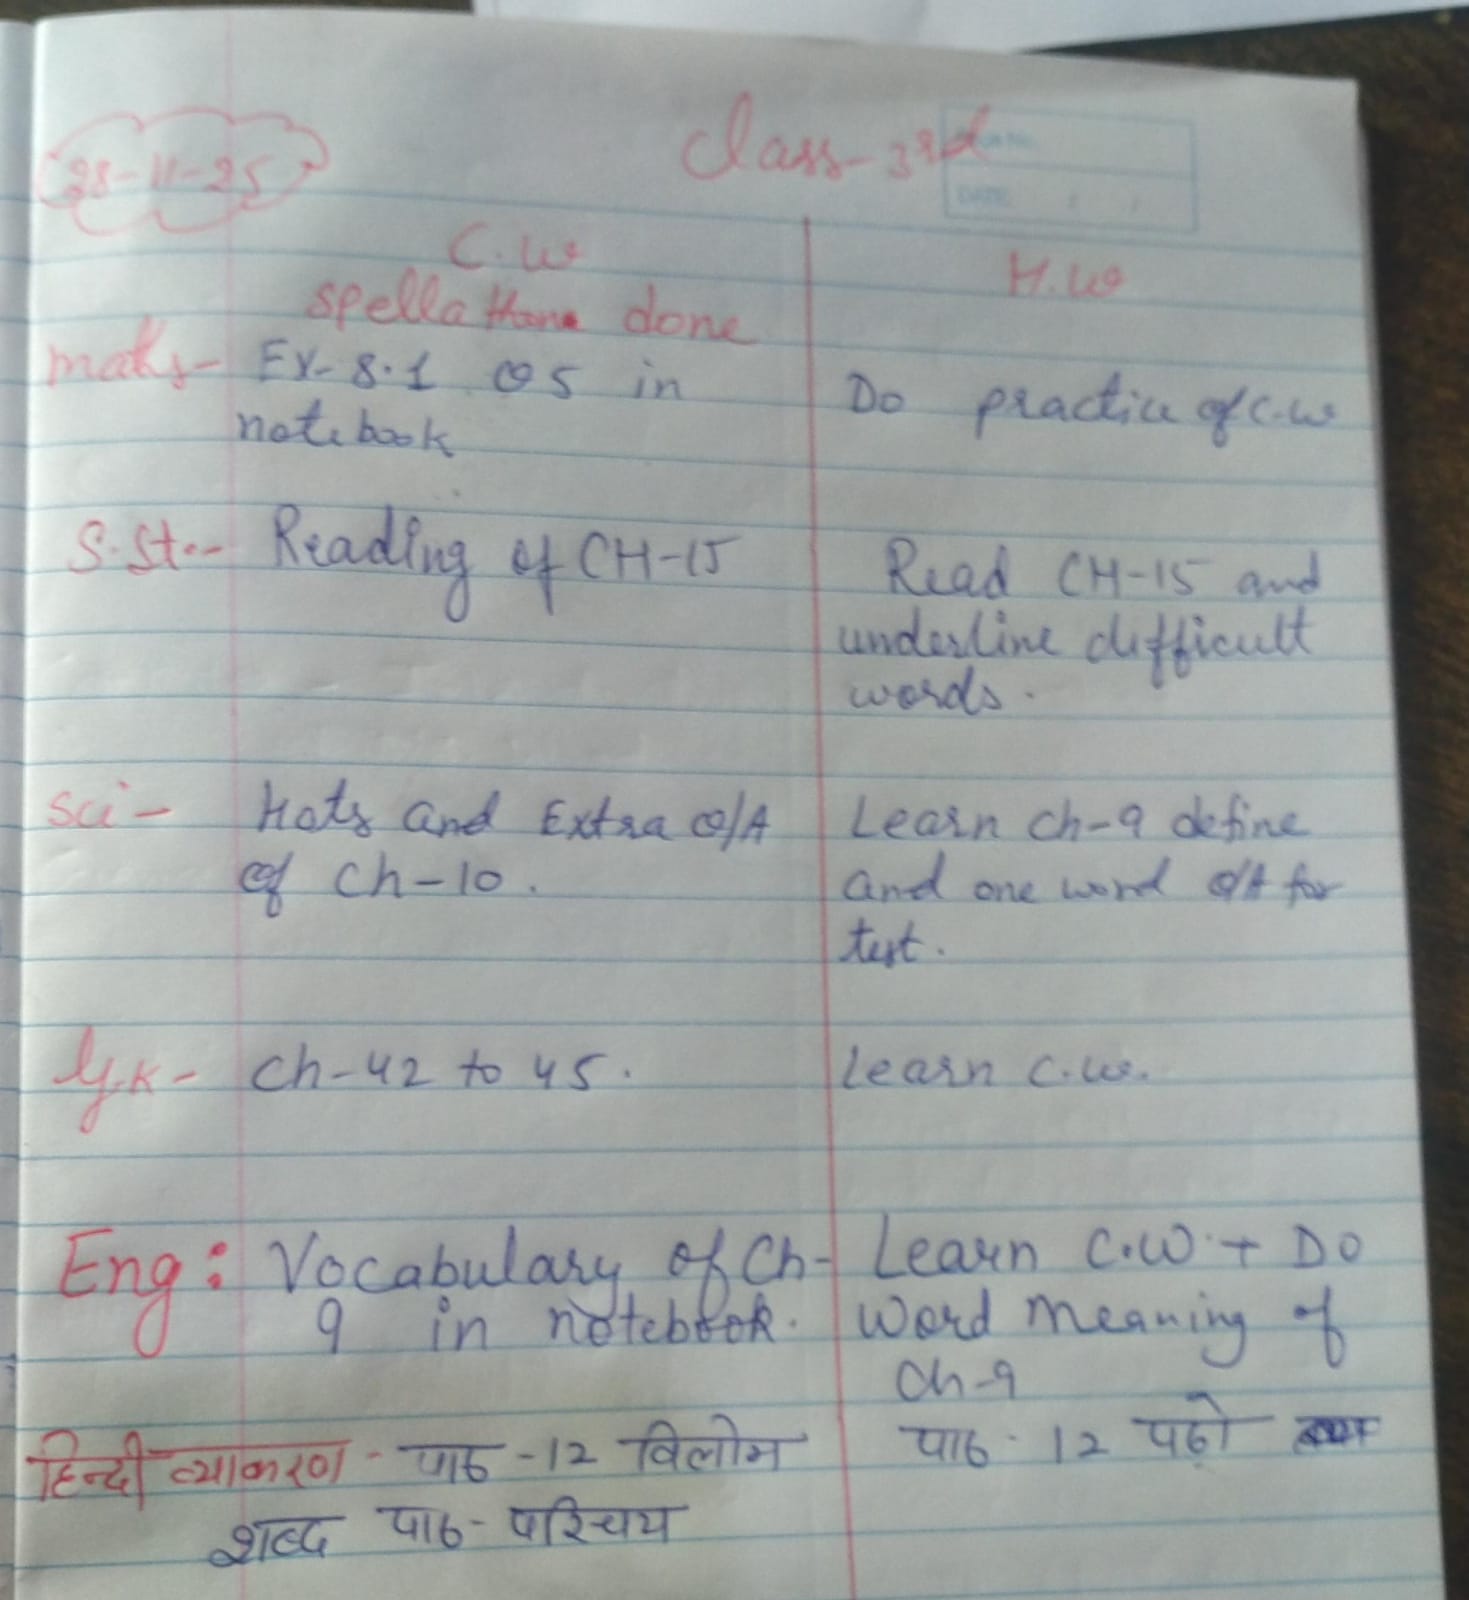 28-11-25
Class-3rd
C.W
H.W
spellathone done
Maths- Ex- 8.1 Q5 in
notebook
Do practice of C.W
S.St.- Reading of CH-15
Read CH-15 and
underline difficult
words.
Sci- Hots and Extra Q/A
of Ch-10.
Learn ch-9 define
and one word Q/A for
test.
G.K- Ch-42 to 45.
Learn C.W.
Eng: Vocabulary of Ch-
9 in notebook.
Learn C.W + Do
Word Meaning of
Ch-9
हिन्दी व्याकरण - पाठ -12 विलोम
शब्द पाठ- परिचय
पाठ - 12 पढ़ो
DATE